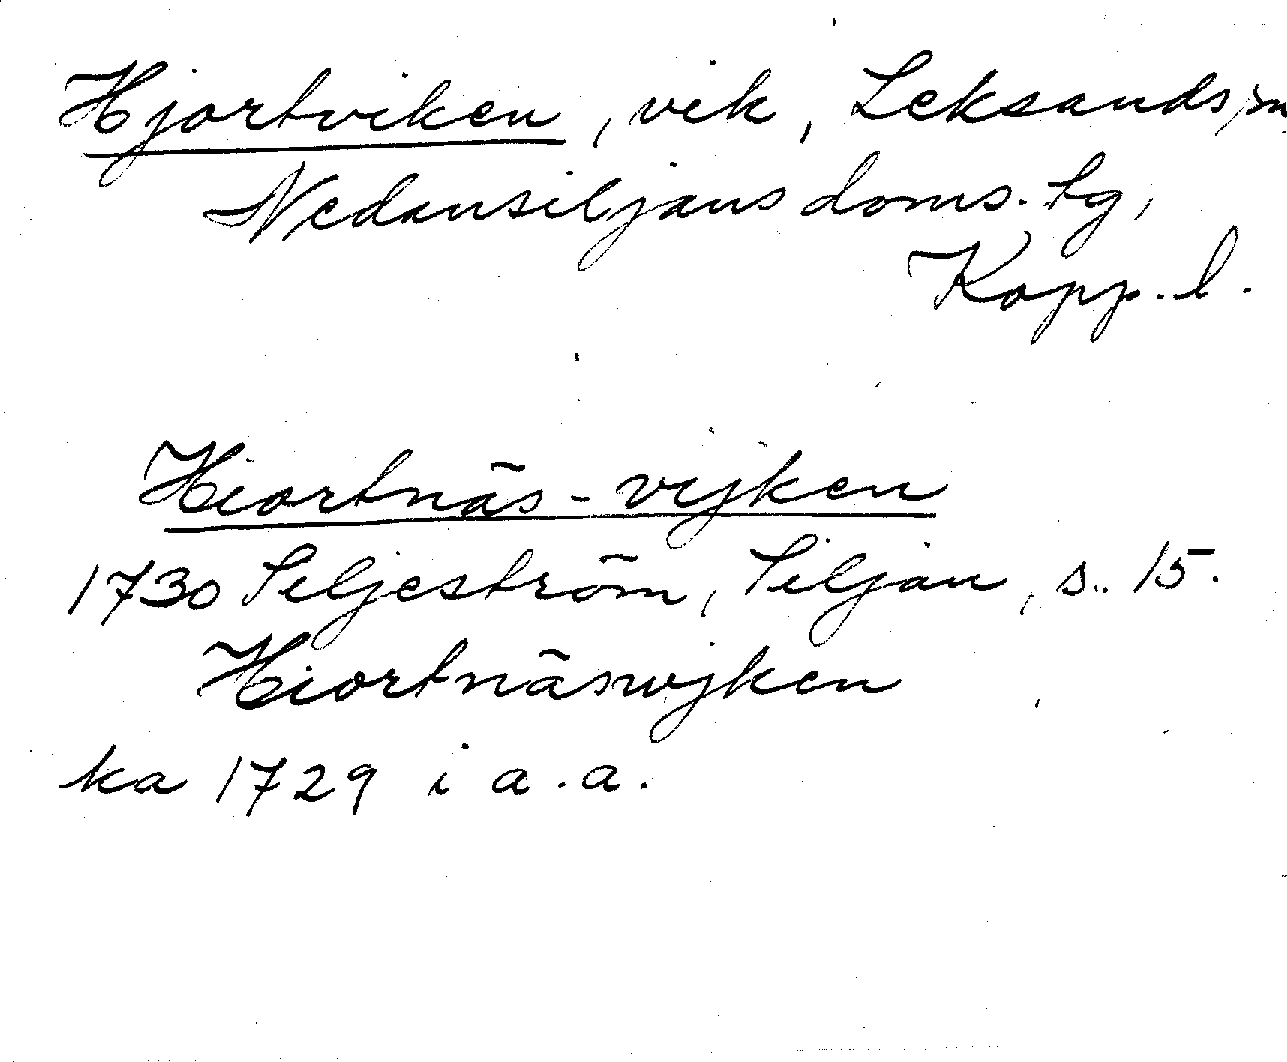 Hjortviken, vik, Leksands sn
Nedansiljans doms. tg,
Kopp. l.
Hiortnäs-vijken
1730 Siljeström, Siljan, s. 15.
Hiortnäswijken
ka 1729 i a.a.